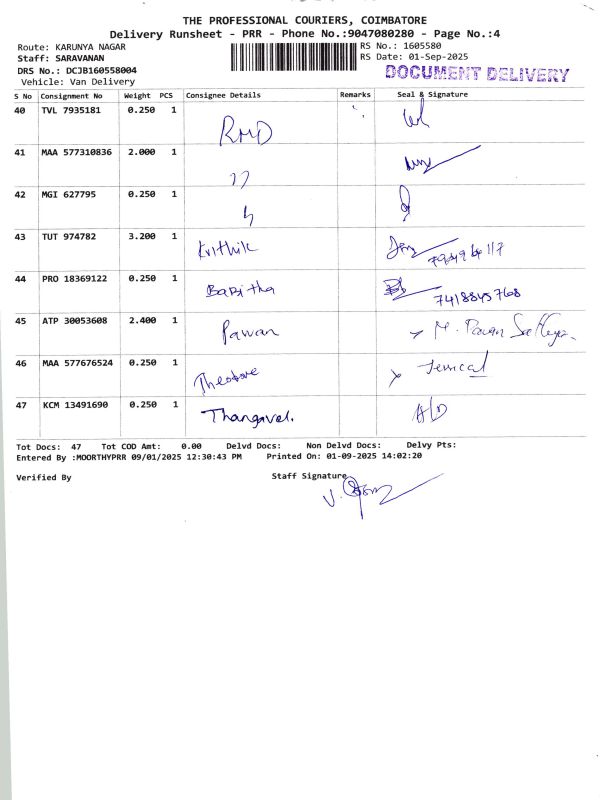 THE PROFESSIONAL COURIERS, COIMBATORE
Delivery Runsheet - PRR - Phone No.:9047080280 - Page No.:4
Route: KARUNYA NAGAR RS No.: 1605580
Staff: SARAVANAN RS Date: 01-Sep-2025
DRS No.: DCJB160558004 DOCUMENT DELIVERY
Vehicle: Van Delivery
S No Consignment No Weight PCS Consignee Details Remarks Seal & Signature
40 TVL 7935181 0.250 1 RMD
41 MAA 577310836 2.000 1 ,,
42 MGI 627795 0.250 1
43 TUT 974782 3.200 1 Krithik
44 PRO 18369122 0.250 1 Babitha 7418845768
45 ATP 30053608 2.400 1 Pawan M. Pavan
46 MAA 577676524 0.250 1 Theodore
47 KCM 13491690 0.250 1 Thangavel.
Tot Docs: 47 Tot COD Amt: 0.00 Delvd Docs: Non Delvd Docs: Delvy Pts:
Entered By :MOORTHYPRR 09/01/2025 12:30:43 PM Printed On: 01-09-2025 14:02:20
Verified By Staff Signature